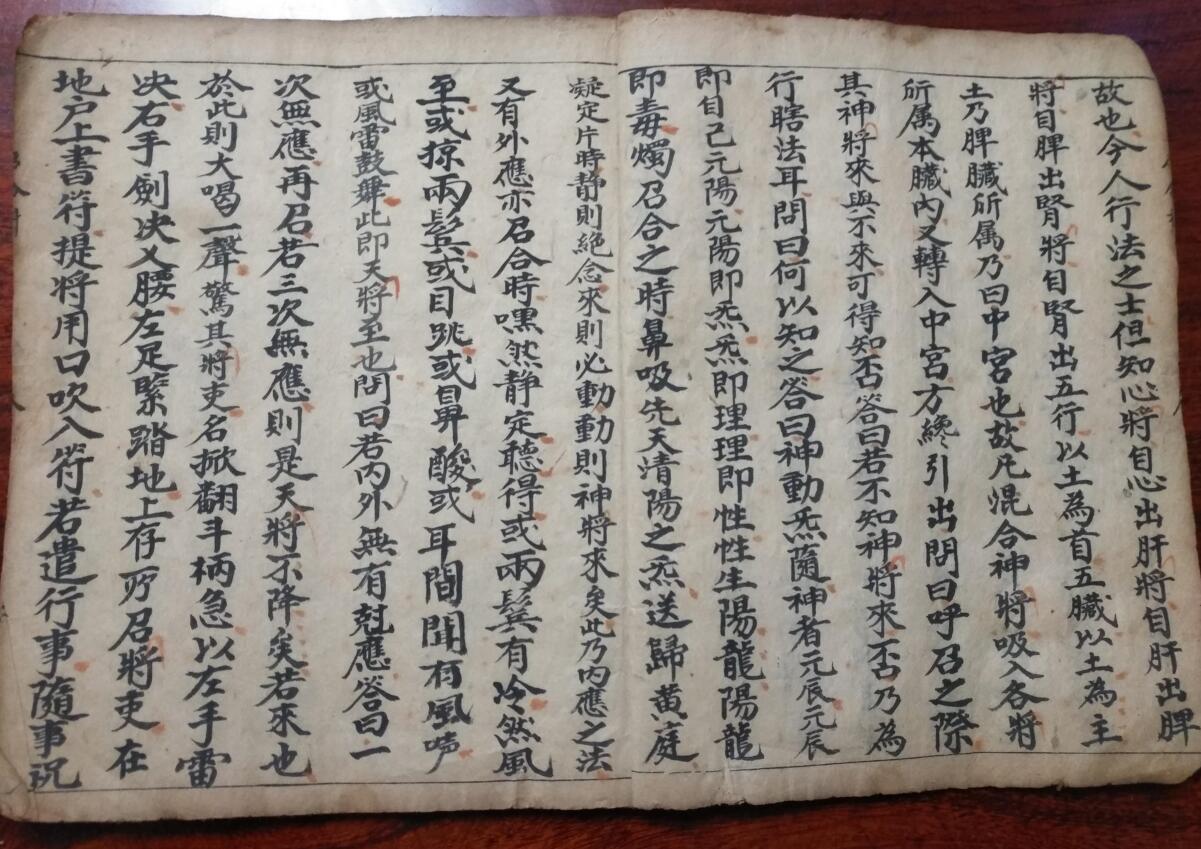 故也今人行法之士但知心將自心出肝將自肝出脾
將自脾出腎將自腎出五行以土為首五臟以土為主
土乃脾臟所属乃曰中宮也故凡混合神將吸入各將
所属本臟內又轉入中宮方纔引出問曰呼召之際
其神將來與不來可得知否答曰若不知神將來否乃為
行瞎法耳問曰何以知之答曰神動炁隨神者元辰元辰
即自己元陽元陽即炁炁即理理即性性生陽龍陽龍
即毒燭召合之時鼻吸先天清陽之炁送歸黄庭
凝定片時静則絕念來則必動動則神將來矣此乃內應之法
又有外應亦召合時嘿然静定聽得或兩鬂有冷然風
至或掠兩鬂或目跳或鼻酸或耳間聞有風声
或風雷鼓舞此即天將至也問曰若内外無有尅應答曰一
次無應再召若三次無應則是天將不降矣若來也
於此則大喝一聲驚其將吏名掀翻斗柄急以左手雷
决右手劍决叉腰左足緊踏地上存所召將吏在
地户上書符提將用口吹入符若遣行事隨事祝